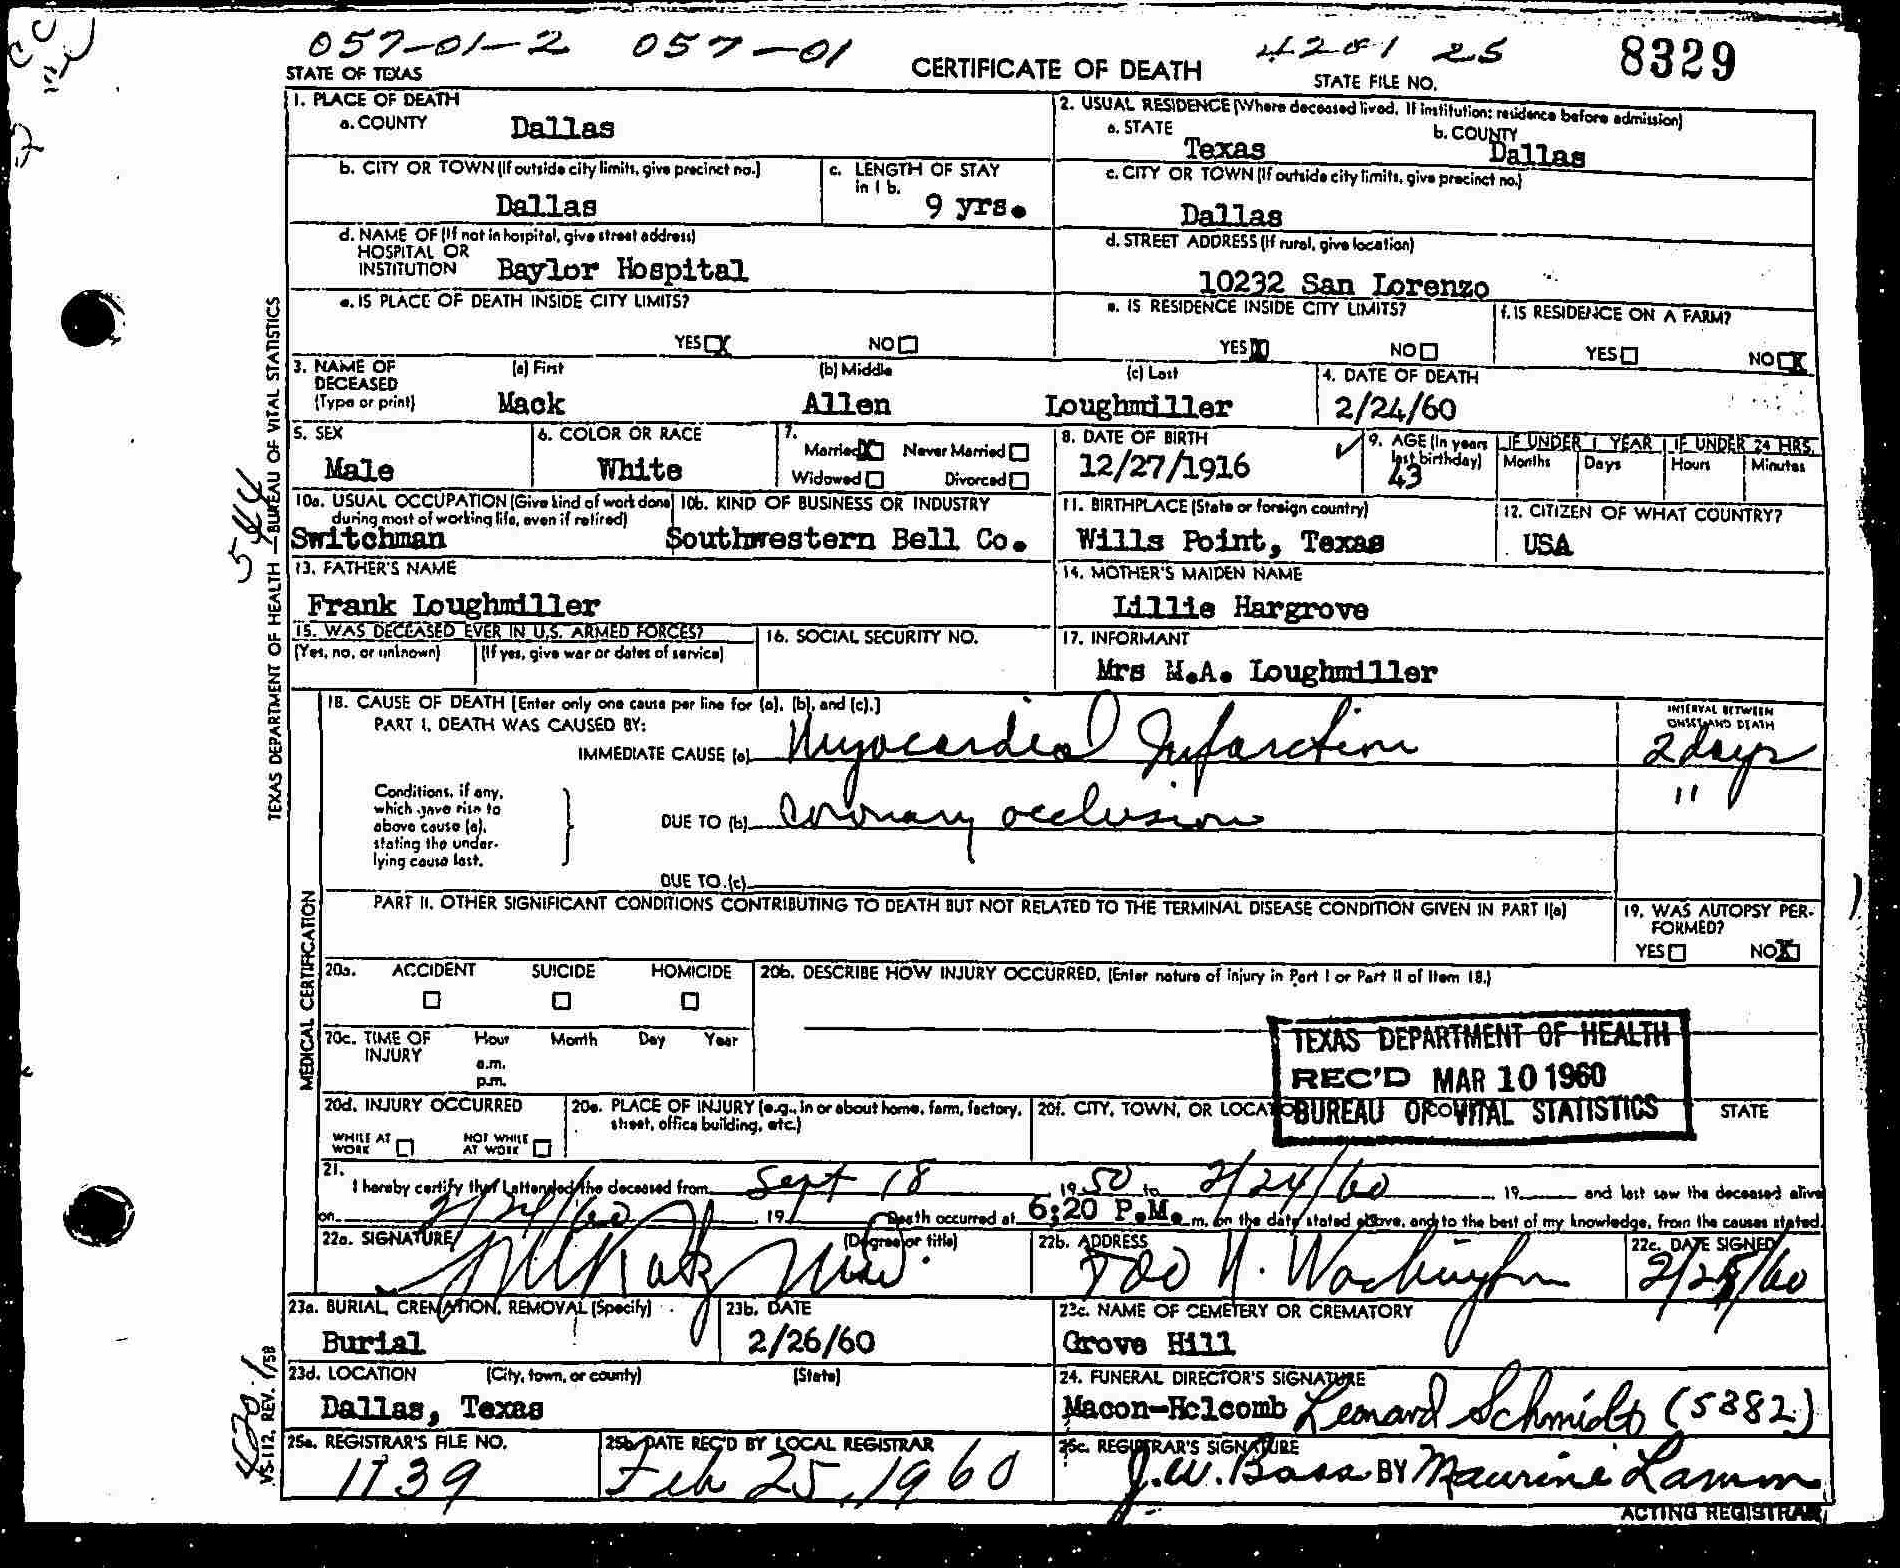 057-01-2 057-01 4201 25 8329
STATE OF TEXAS CERTIFICATE OF DEATH STATE FILE NO.
1. PLACE OF DEATH
a. COUNTY Dallas
2. USUAL RESIDENCE (Where deceased lived. If institution: residence before admission)
a. STATE Texas b. COUNTY Dallas
b. CITY OR TOWN (If outside city limits, give precinct no.) Dallas
c. LENGTH OF STAY in 1 b. 9 yrs.
c. CITY OR TOWN (If outside city limits, give precinct no.) Dallas
d. NAME OF (If not in hospital, give street address)
HOSPITAL OR
INSTITUTION Baylor Hospital
d. STREET ADDRESS (If rural, give location)
10232 San Lorenzo
e. IS PLACE OF DEATH INSIDE CITY LIMITS?
YES X NO
e. IS RESIDENCE INSIDE CITY LIMITS?
YES X NO
f. IS RESIDENCE ON A FARM?
YES NO X
3. NAME OF DECEASED (Type or print)
(a) First Mack (b) Middle Allen (c) Last Loughmiller
4. DATE OF DEATH
2/24/60
5. SEX
Male
6. COLOR OR RACE
White
7. Married X Never Married
Widowed Divorced
8. DATE OF BIRTH
12/27/1916
9. AGE (In years last birthday)
43
IF UNDER 1 YEAR IF UNDER 24 HRS.
Months Days Hours Minutes
10a. USUAL OCCUPATION (Give kind of work done during most of working life, even if retired)
Switchman
10b. KIND OF BUSINESS OR INDUSTRY
Southwestern Bell Co.
11. BIRTHPLACE (State or foreign country)
Wills Point, Texas
12. CITIZEN OF WHAT COUNTRY?
USA
13. FATHER'S NAME
Frank Loughmiller
14. MOTHER'S MAIDEN NAME
Lillie Hargrove
15. WAS DECEASED EVER IN U.S. ARMED FORCES?
(Yes, no, or unknown) (If yes, give war or dates of service)
16. SOCIAL SECURITY NO.
17. INFORMANT
Mrs M.A. Loughmiller
18. CAUSE OF DEATH [Enter only one cause per line for (a), (b), and (c).]
PART I. DEATH WAS CAUSED BY:
IMMEDIATE CAUSE (a) Myocardial Infarction
INTERVAL BETWEEN ONSET AND DEATH
2 days
Conditions, if any, which gave rise to above cause (a), stating the underlying cause last.
DUE TO (b) Coronary occlusion "
DUE TO (c)
PART II. OTHER SIGNIFICANT CONDITIONS CONTRIBUTING TO DEATH BUT NOT RELATED TO THE TERMINAL DISEASE CONDITION GIVEN IN PART I(a)
19. WAS AUTOPSY PERFORMED?
YES NO X
20a. ACCIDENT SUICIDE HOMICIDE
20b. DESCRIBE HOW INJURY OCCURRED. (Enter nature of injury in Part I or Part II of Item 18.)
20c. TIME OF INJURY Hour Month Day Year
a.m.
p.m.
TEXAS DEPARTMENT OF HEALTH
REC'D MAR 10 1960
BUREAU OF VITAL STATISTICS
20d. INJURY OCCURRED
WHILE AT WORK NOT WHILE AT WORK
20e. PLACE OF INJURY (e.g., in or about home, farm, factory, street, office building, etc.)
20f. CITY, TOWN, OR LOCATIO STATE
21.
I hereby certify that I attended the deceased from Sept 18 1950 to 2/24/60 19 and last saw the deceased alive
on 2/24/60 19 Death occurred at 6:20 P.M. m. on the date stated above, and to the best of my knowledge, from the causes stated.
22a. SIGNATURE (Degree or title)
22b. ADDRESS
N. Washington
22c. DATE SIGNED
2/25/60
23a. BURIAL, CREMATION, REMOVAL (Specify)
Burial
23b. DATE
2/26/60
23c. NAME OF CEMETERY OR CREMATORY
Grove Hill
23d. LOCATION (City, town, or county) (State)
Dallas, Texas
24. FUNERAL DIRECTOR'S SIGNATURE
Macon-Holcomb Leonard Schmidt (5382)
25a. REGISTRAR'S FILE NO.
1739
25b. DATE REC'D BY LOCAL REGISTRAR
Feb 25, 1960
25c. REGISTRAR'S SIGNATURE
J.W. Bass BY Maurine Lamm
ACTING REGISTRAR
TEXAS DEPARTMENT OF HEALTH — BUREAU OF VITAL STATISTICS
MEDICAL CERTIFICATION
VS-112, REV. 1/58